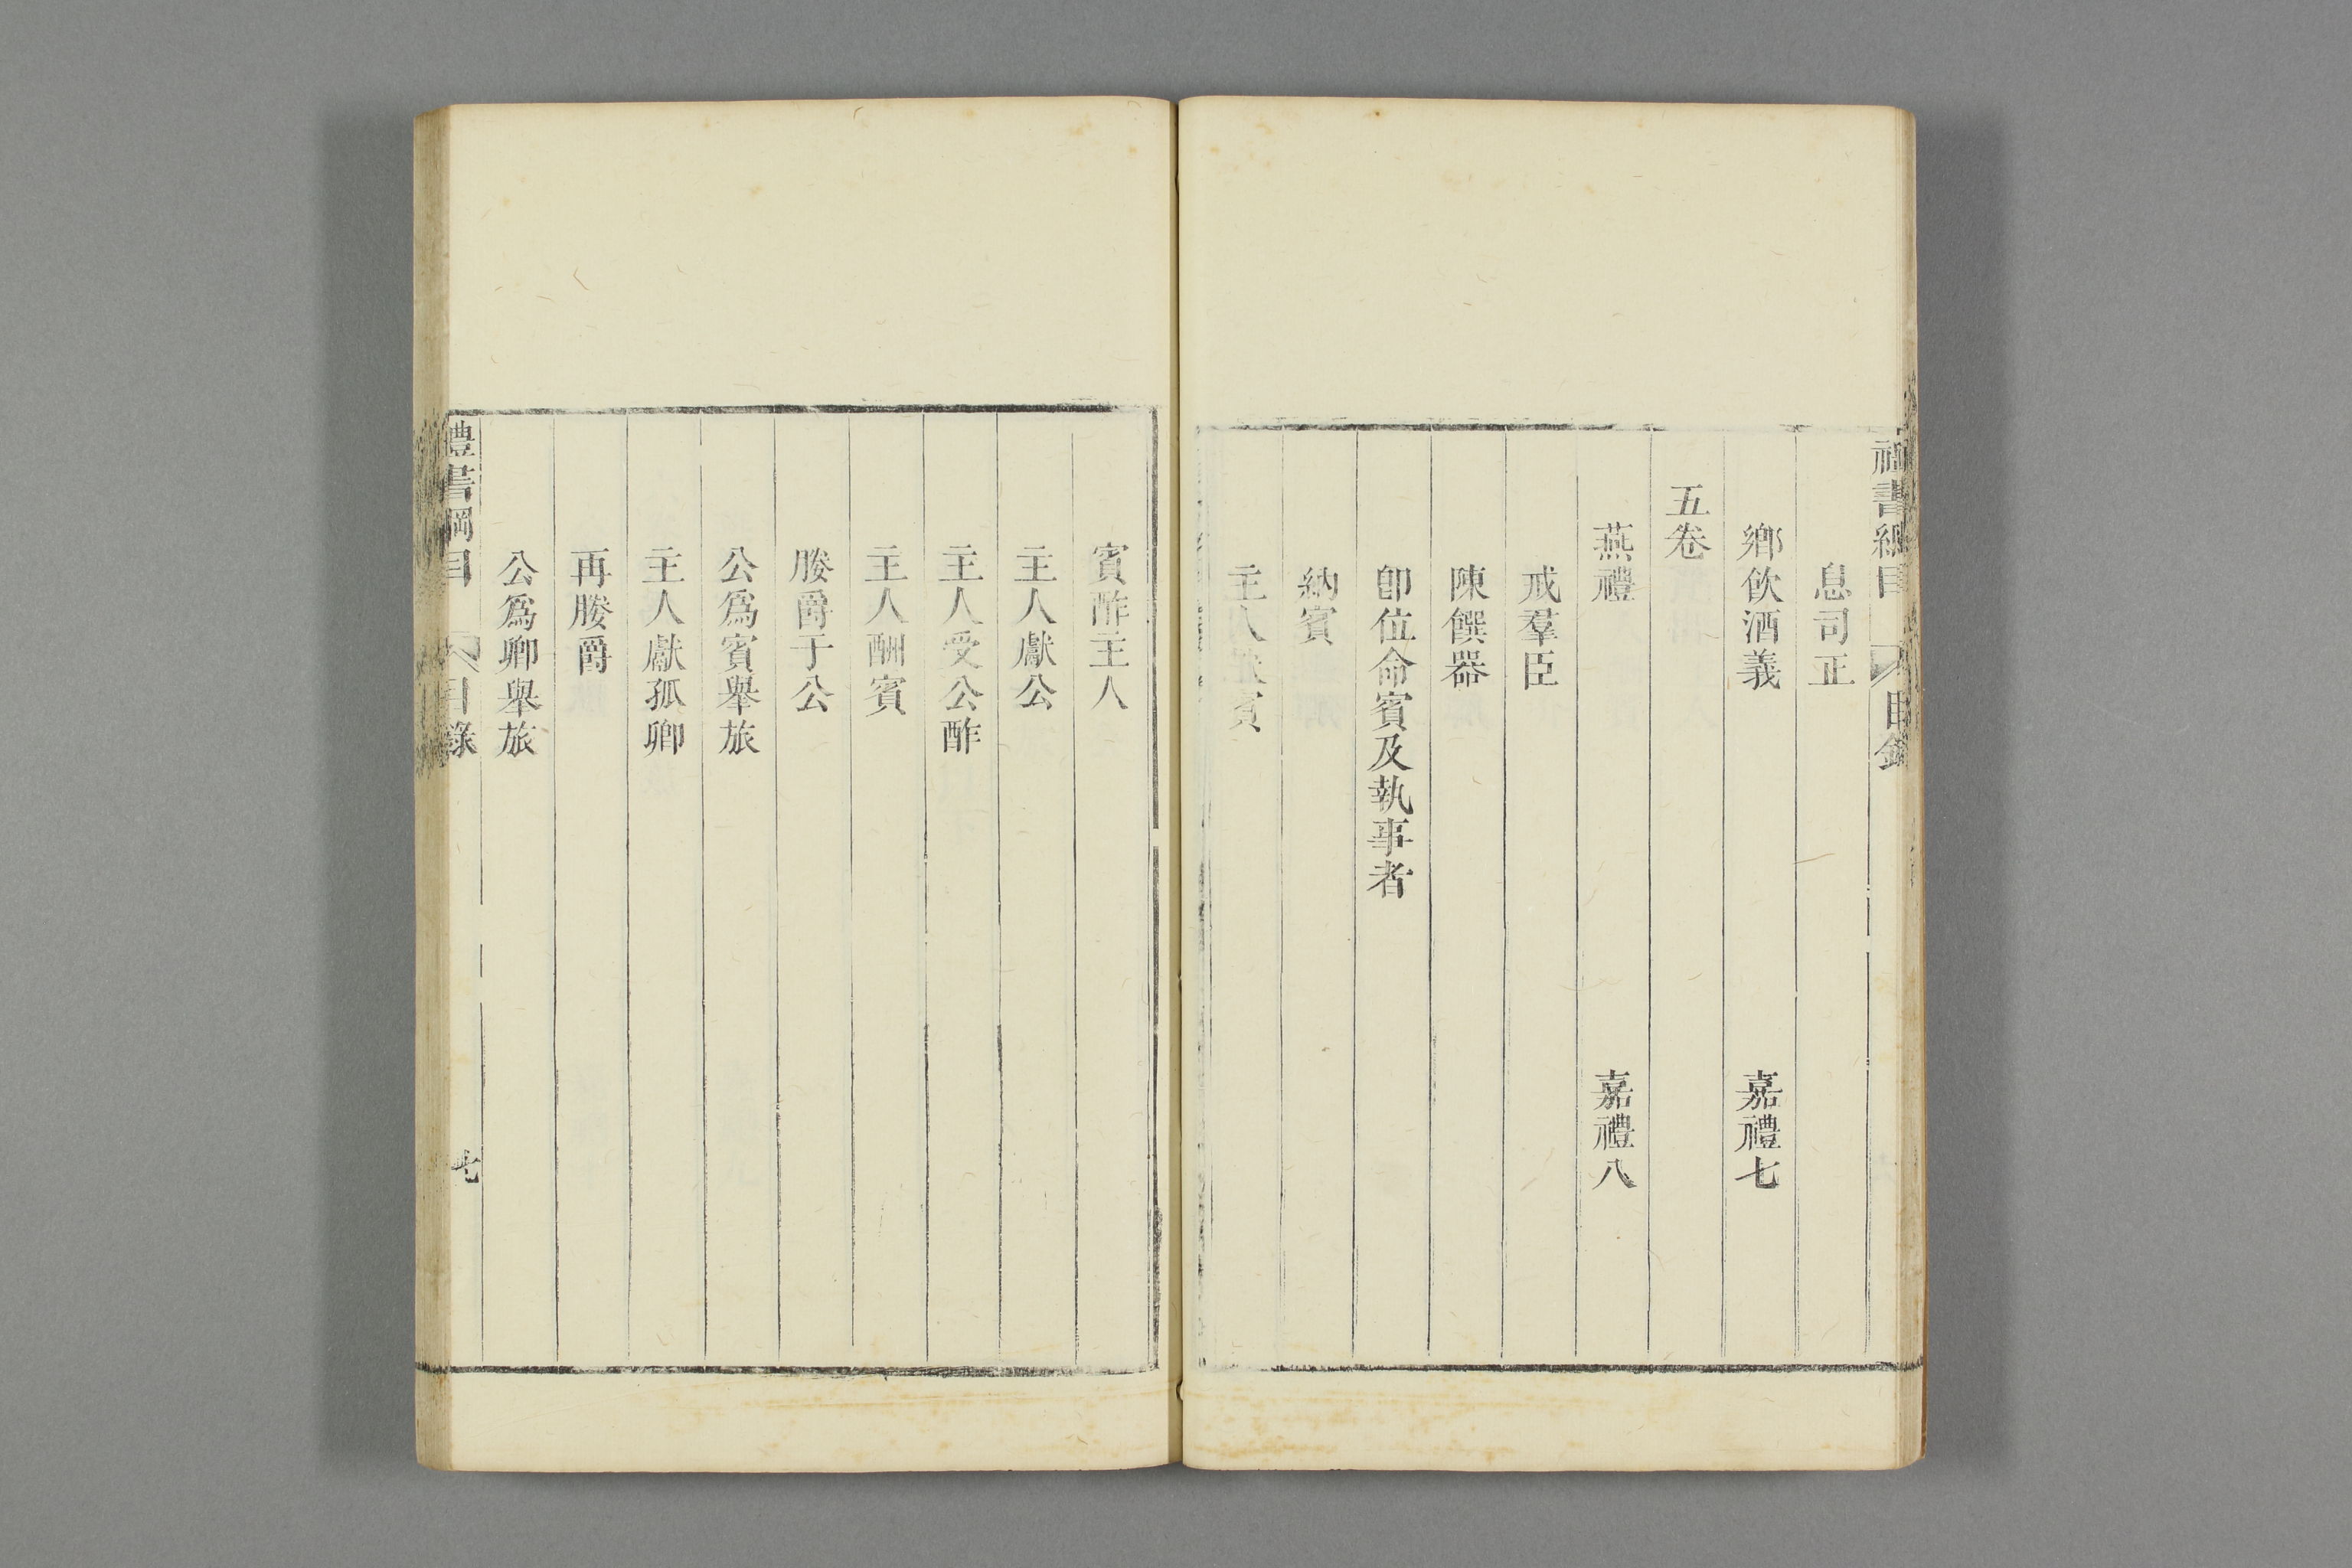 禮書綱目 目錄
息司正
鄉飲酒義 嘉禮七
五卷
燕禮 嘉禮八
戒羣臣
陳饌器
卽位命賓及執事者
納賓
主人獻賓
賓酢主人
主人獻公
主人受公酢
主人酬賓
媵爵于公
公爲賓舉旅
主人獻孤卿
再媵爵
公爲卿舉旅
禮書綱目 目錄 七